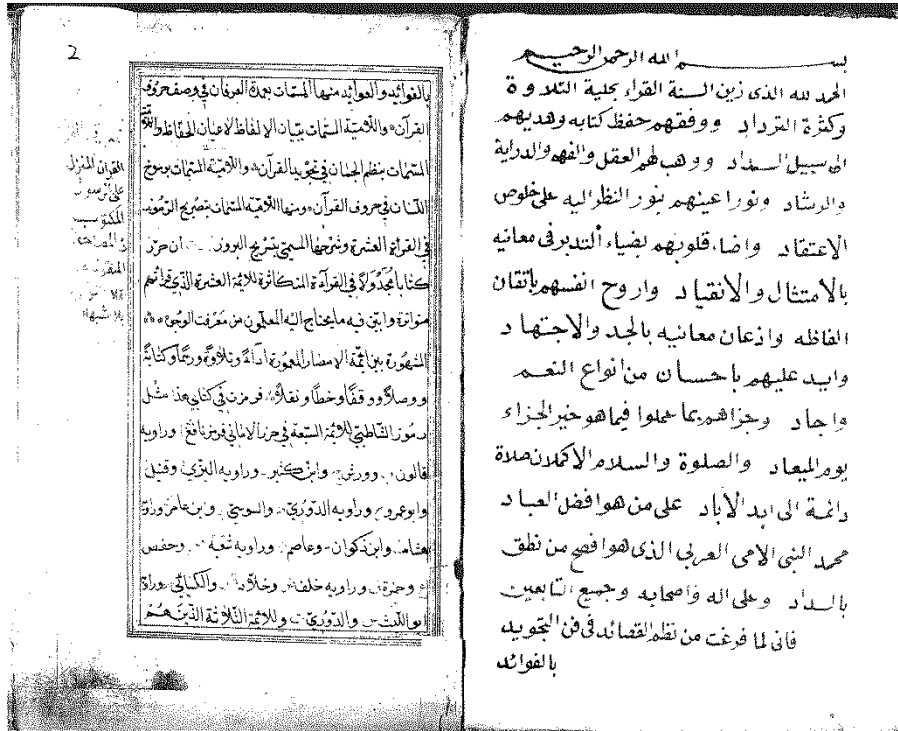 بسم الله الرحمن الرحيم
الحمد لله الذى زين السنة القراء بحلية التلاوة
وكثرة الترداد ووفقهم حفظ كتابه وهديهم
الى سبيل السداد ووهب لهم العقل والفهم والدراية
والرشاد ونور اعينهم بنور النظر اليه على خلوص
الاعتقاد واضاء قلوبهم بضياء التدبر فى معانيه
بالامتثال والانقياد واروح انفسهم باتقان
الفاظه واذعان معانيه بالجد والاجتهاد
وايد عليهم باحسان من انواع النعم
واجاد وجزاهم بما عملوا فيما هو خير الجزاء
يوم الميعاد والصلوة والسلام الاكملان صلاة
دائمة الى ابد الاباد على من هو افضل العباد
محمد النبى الامى العربى الذى هو افصح من نطق
بالسداد وعلى اله واصحابه وجميع التابعين
فانى لما فرغت من نظم القصائد فى فن التجويد
بالفوائد
2
بالفوائد والعوائد منها المسمات بعمدة العرفان في وصف حروف
القرآن واللامية المسمات بتبيان الالفاظ لاعيان الحفاظ واللامية
المسمات بنظم الجمان في تجويد القرآن واللامية المسمات برسوخ
اللسان في حروف القرآن ومنها اللامية المسمات بتصريح الرموز
في القرأة العشرة وشرحها المسمى بتخريج البروز ان حرر
كتابا مجدولا في القرآءة المتكاثرة للائمة العشرة الذي قرائتهم
متواترة وابين فيه ما يحتاج اليه المعلمون من معرفت الوجوه
المشهورة بين ائمة الامصار المعمورة اداء وتلاوة ورسما وكتابة
ووصلا ووقفا وخطا ونقلا فرمزت في كتابي هذا مثل
رموز الشاطبي للائمة السبعة في حرز الاماني فرمز نافع وراويه
قالون وورش وابن كثير وراويه البزي وقنبل
وابو عمرو وراويه الدوري والسوسي وابن عامر وراوة
هشام وابن ذكوان وعاصم وراويه شعبة وحفص
وحمزة وراويه خلف وخلاد والكسائي وراوة
ابو الليث والدوري وللائمة الثلاثة الذين هم
القرآن المنزل
على الرسول
المكتوب
في المصاحف
المنقول
بلا شبهة